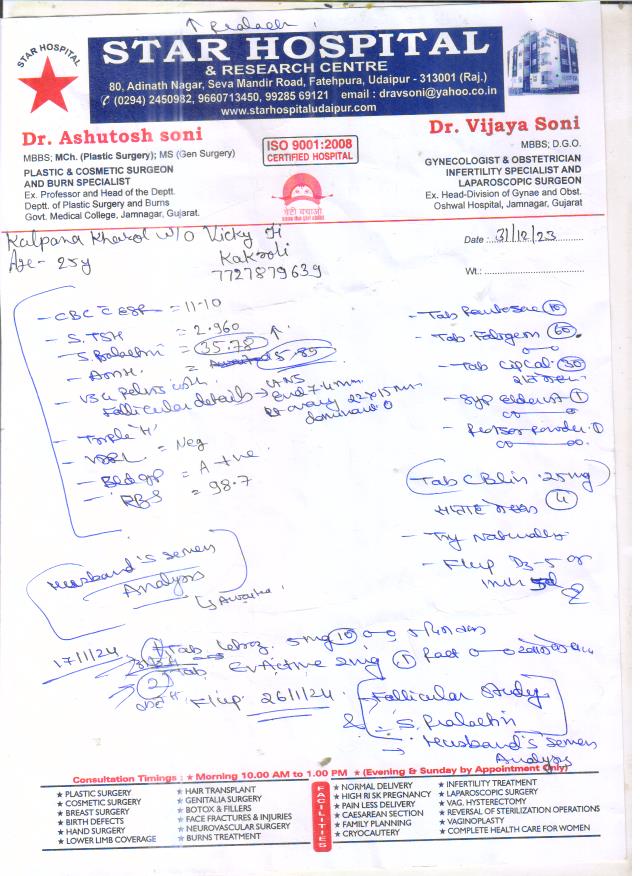 ↑ Prolactin
STAR HOSPITAL
STAR HOSPITAL
& RESEARCH CENTRE
80, Adinath Nagar, Seva Mandir Road, Fatehpura, Udaipur - 313001 (Raj.)
✆ (0294) 2450982, 9660713450, 99285 69121 email : dravsoni@yahoo.co.in
www.starhospitaludaipur.com
Dr. Ashutosh soni
MBBS; MCh. (Plastic Surgery); MS (Gen Surgery)
PLASTIC & COSMETIC SURGEON
AND BURN SPECIALIST
Ex. Professor and Head of the Deptt.
Deptt. of Plastic Surgery and Burns
Govt. Medical College, Jamnagar, Gujarat.
ISO 9001:2008
CERTIFIED HOSPITAL
बेटी बचाओ
Dr. Vijaya Soni
MBBS; D.G.O.
GYNECOLOGIST & OBSTETRICIAN
INFERTILITY SPECIALIST AND
LAPAROSCOPIC SURGEON
Ex. Head-Division of Gynae and Obst.
Oshwal Hospital, Jamnagar, Gujarat
Kalpana Kharol w/o Vicky Ji
Age - 25y
7727879639
Date : 31/12/23
Wt.:
- CBC c ESR = 11.10
- S. TSH = 2.960
- S. Prolactin = 35.78 ↑
- AMH. = 5.89
Follicular details →
Rt ovary 22x15 mm
dominant
- Triple 'H'
- VDRL = Neg
- Bld gp = A +ve
- RBS = 98.7
Husband's Semen
Analysis
↳ Awaited
- Tab 10
- Tab. 60
- Tab CipCal 30
- Syp 1
- powder 1
Tab CBlin .25mg
4
- Try Naturally
- F/up D3-5 of
17/1/24
Tab 5mg 10
Tab 2mg 1
F/up 26/1/24
- Follicular Study
& S. Prolactin
→ Husband's Semen
Analysis
Consultation Timings : ★ Morning 10.00 AM to 1.00 PM ★ (Evening & Sunday by Appointment Only)
★ PLASTIC SURGERY
★ COSMETIC SURGERY
★ BREAST SURGERY
★ BIRTH DEFECTS
★ HAND SURGERY
★ LOWER LIMB COVERAGE
★ HAIR TRANSPLANT
★ GENITALIA SURGERY
★ BOTOX & FILLERS
★ FACE FRACTURES & INJURIES
★ NEUROVASCULAR SURGERY
★ BURNS TREATMENT
FACILITIES
★ NORMAL DELIVERY
★ HIGH RISK PREGNANCY
★ PAIN LESS DELIVERY
★ CAESAREAN SECTION
★ FAMILY PLANNING
★ CRYOCAUTERY
★ INFERTILITY TREATMENT
★ LAPAROSCOPIC SURGERY
★ VAG. HYSTERECTOMY
★ REVERSAL OF STERILIZATION OPERATIONS
★ VAGINOPLASTY
★ COMPLETE HEALTH CARE FOR WOMEN